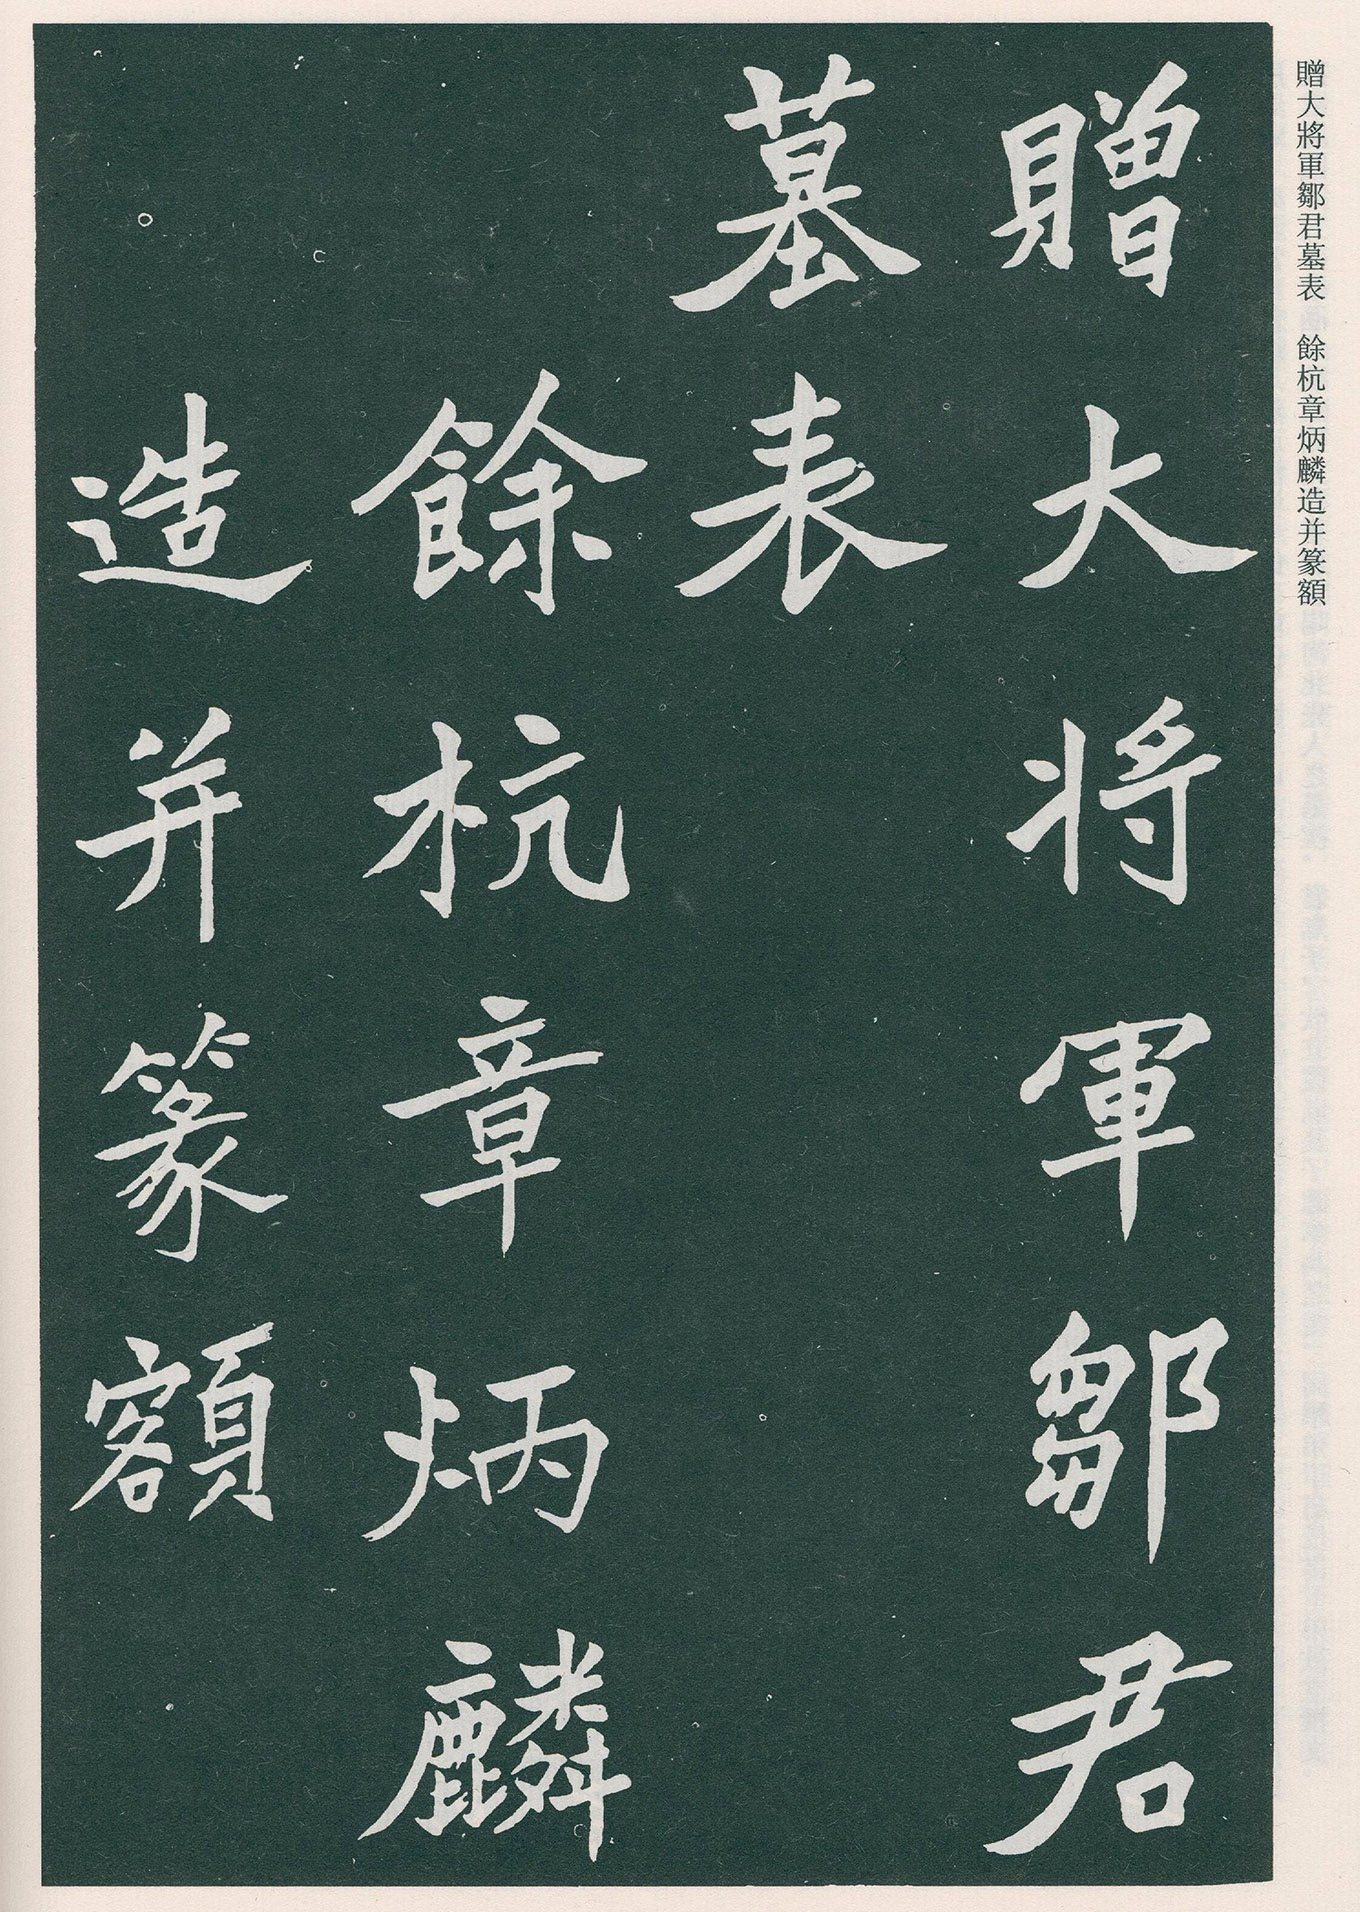 贈大將軍鄒君墓表 餘杭章炳麟造并篆額
贈大將軍鄒君
墓表
餘杭章炳麟
造并篆額